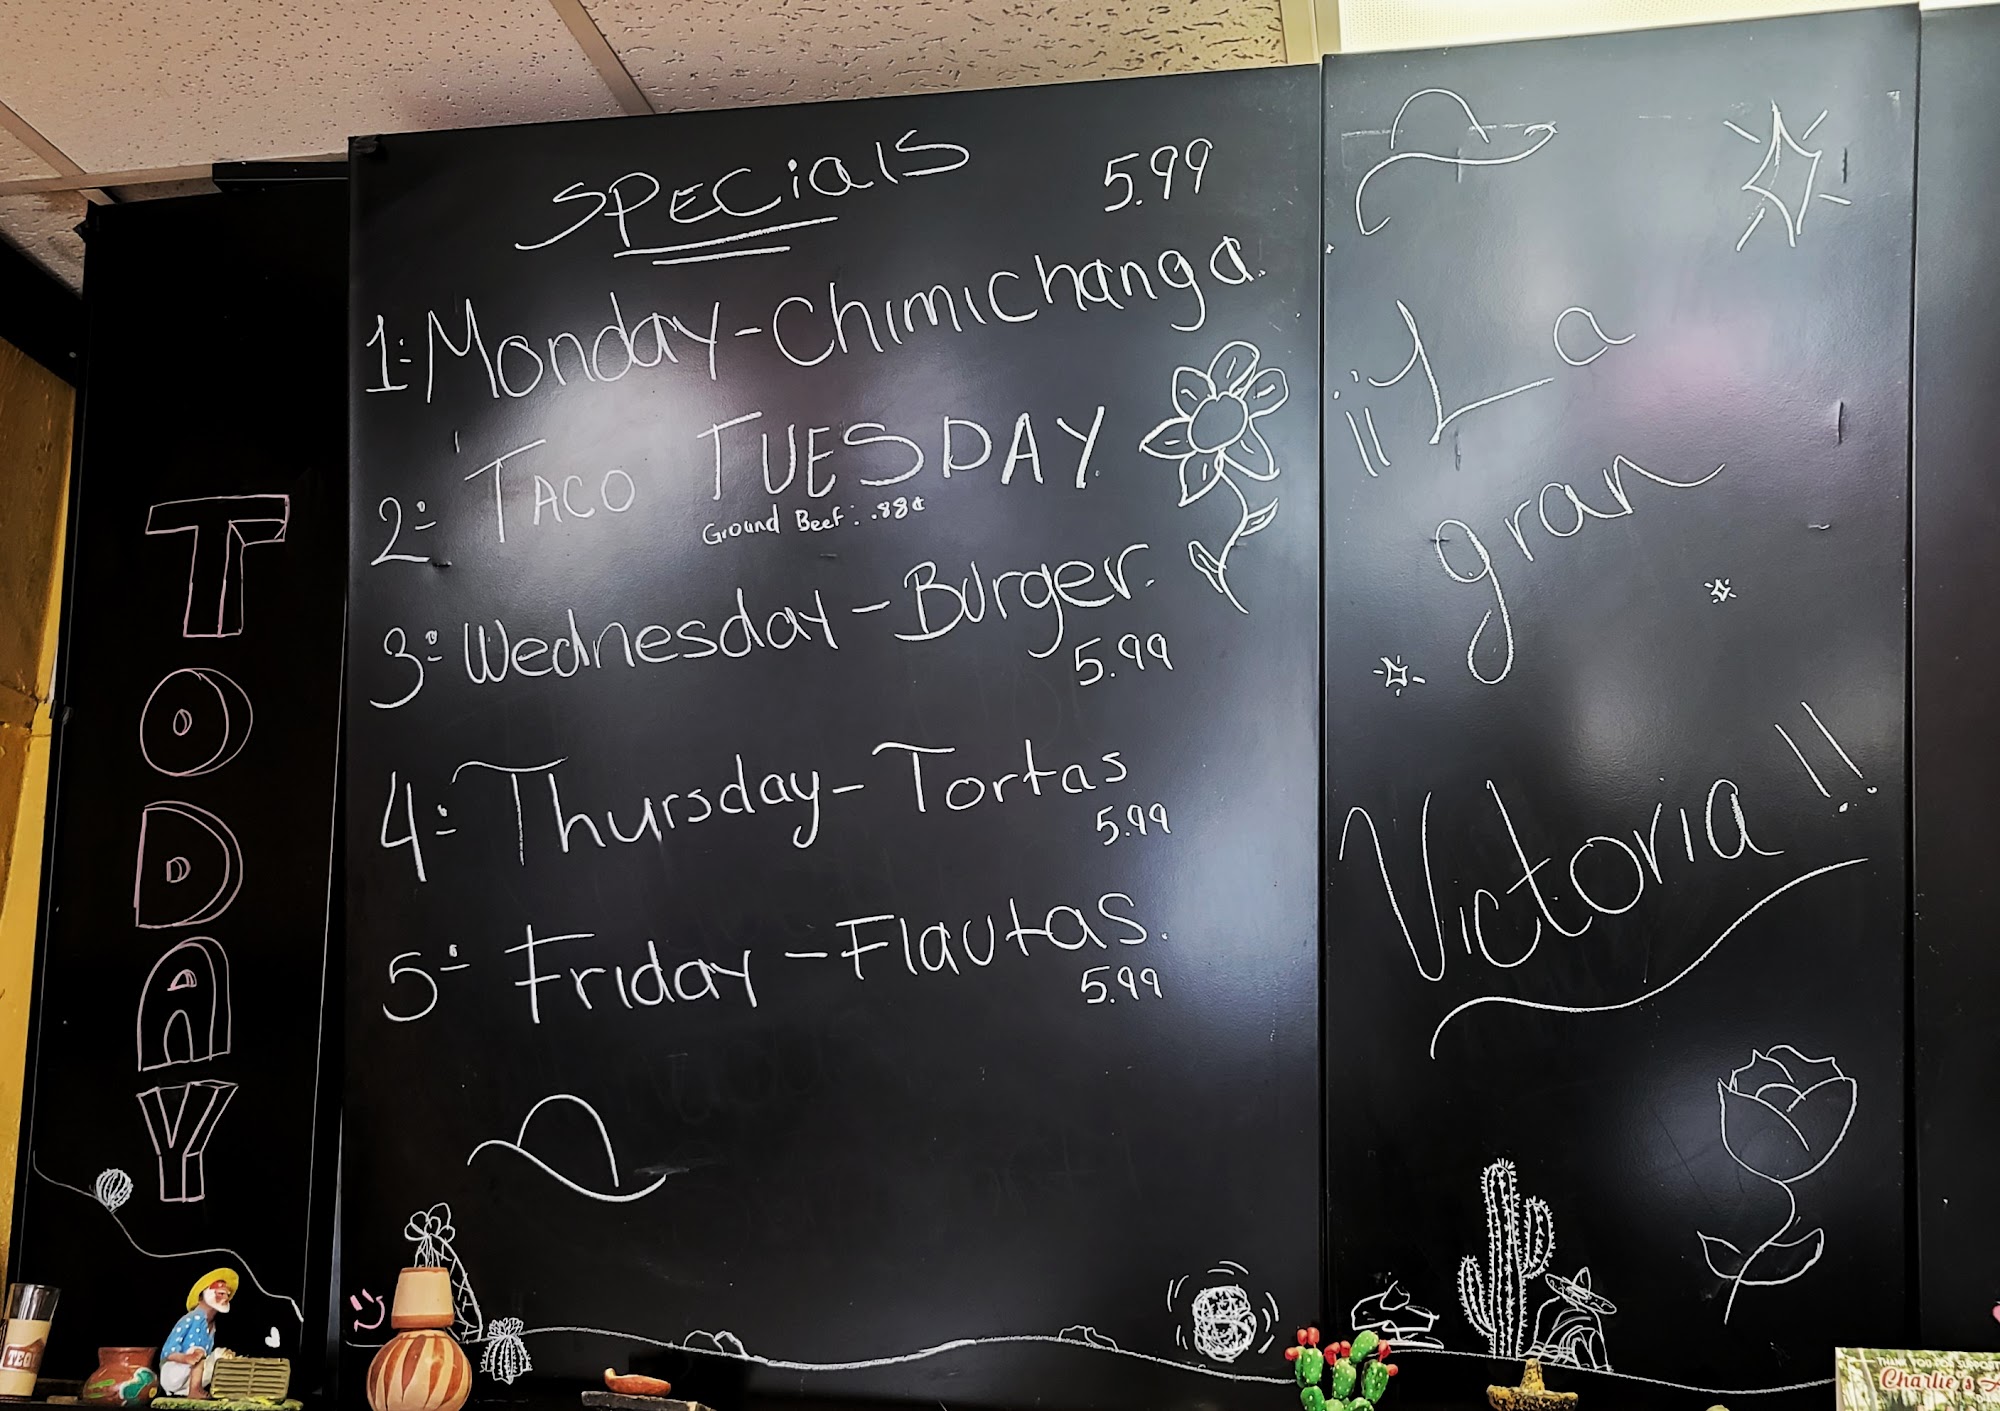 TODAY
SPECialS
5.99
1:Monday-Chimichanga.
2: TACO TUESDAY
Ground Beef: .88¢
3: Wednesday-Burger.
5.99
4: Thursday-Tortas
5.99
5: Friday-Flautas.
5.99
¡¡La
gran
Victoria!!
THANK YOU FOR
Charlie's